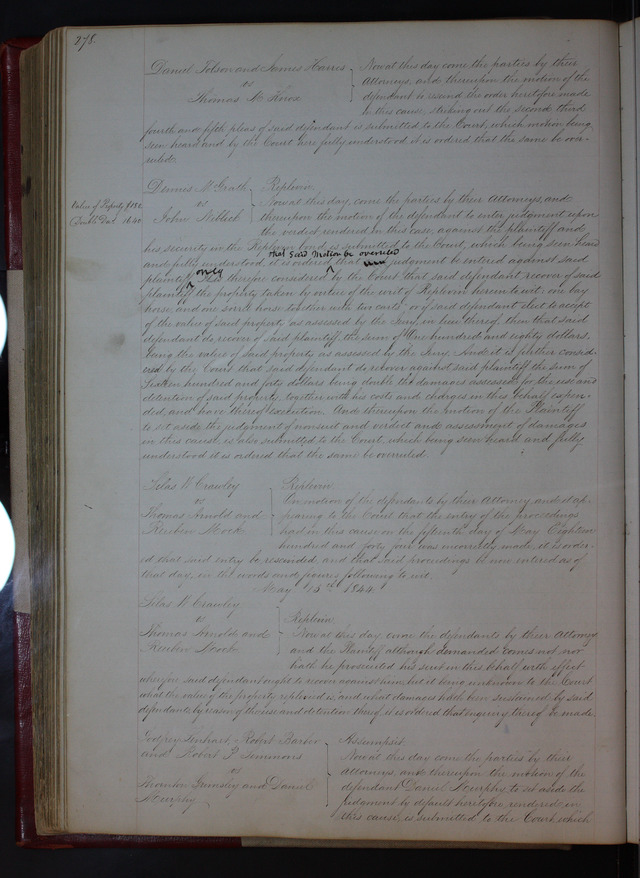 278.
Daniel Tolson and James Harris } Now at this day come the parties by their
vs Attorneys, and thereupon the motion of the
Thomas M. Knox defendant to resind the order heretofore made
in this cause, striking out the second third
fourth and fifth pleas of said defendant is submitted to the Court, which motion being
seen heard and by the Court here fully understood it is ordered that the same be over-
ruled.
Dennis McGrath } Replevin.
Value of Property $180.
vs Now at this day, come the parties by their Attorneys, and
Double Dam. 16.40
John Niblick thereupon the motion of the defendant to enter judgment upon
the verdict rendered in this case against the plaintiff and
his security in the Replevin bond is submitted to the Court, which being seen heard
that said motion be overruled
and fully understood, it is ordered that judgment be entered against said
plaintiff only It is therefore considered by the Court that said defendant recover of said
plaintiff the property taken by virtue of the writ of Replevin herein to wit: one bay
horse, and one sorrel horse together with two carts or if said defendant elect to accept
of the value of said property as assessed by the Jury, in lieu thereof, then that said
defendant do recover of said plaintiff the sum of One hundred and eighty dollars.
being the value of said property as assessed by the Jury. And it is further consid-
ered by the Court that said defendant do recover against said plaintiff the sum of
Sixteen hundred and forty dollars being double the damages assessed for the use and
detention of said property, together with his costs and charges in this behalf expen-
ded, and have thereof execution. And thereupon the motion of the Plaintiff
to set aside the judgment of nonsuit and verdict and assessment of damages
in this cause is also submitted to the Court, which being seen heard and fully
understood it is ordered that the same be overruled.
Silas W Crawley } Replevin.
vs On motion of the defendants by their Attorney and it ap-
Thomas Arnold and pearing to the Court that the entry of the proceedings
Reuben Mock had in this cause on the fifteenth day of May Eighteen
hundred and forty four was incorrectly made, it is order-
ed that said entry be rescinded, and that said proceedings be now entered as of
that day, in the words and figures following to wit.
May 15th 1844.
Silas W. Crawley } Replevin.
vs
Thomas Arnold and Now at this day, come the defendants by their Attorney
Reuben Mock and the Plaintiff although demanded comes not, nor
hath he prosecuted his suit in this behalf with effect
wherefore said defendant ought to recover against him, but it being unknown to the Court
what the value of the property replevied is, and what damages hath been sustained by said
defendants by reason of the use and detention thereof, it is ordered that inquiry thereof be made.
Godfrey Lenhart, Robert Barber } Assumpsit.
and Robert P. Simmons Now at this day come the parties by their
vs Attorneys, and thereupon the motion of the
Thornton Grimsley and Daniel defendant Daniel Murphy to set aside the
Murphy judgment by default heretofore rendered in
this cause, is submitted to the Court, which